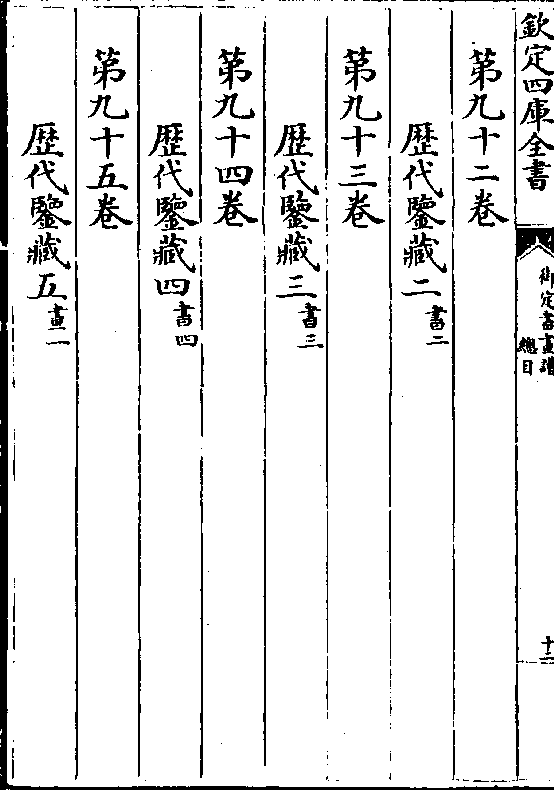 欽定四庫全書
御定書畫譜
總目
十二
第九十二卷
歴代鑒藏二書二
第九十三卷
歴代鑒藏三書三
第九十四卷
歴代鑒藏四書四
第九十五卷
歴代鑒藏五畫一